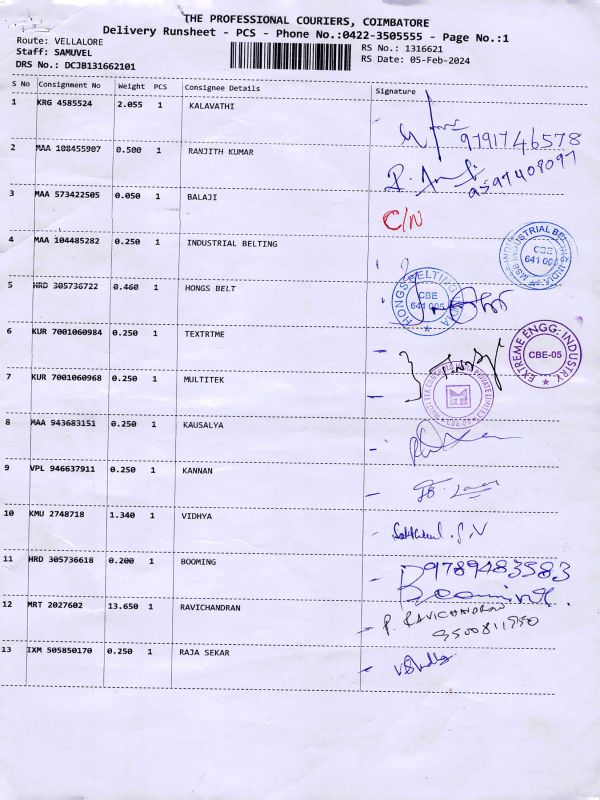 THE PROFESSIONAL COURIERS, COIMBATORE
Delivery Runsheet - PCS - Phone No.:0422-3505555 - Page No.:1
Route: VELLALORE
RS No.: 1316621
Staff: SAMUVEL
RS Date: 05-Feb-2024
DRS No.: DCJB131662101
S No Consignment No Weight PCS Consignee Details Signature
1 KRG 4585524 2.055 1 KALAVATHI
9791746578
2 MAA 108455907 0.500 1 RANJITH KUMAR
9597409097
3 MAA 573422505 0.050 1 BALAJI C/N
4 MAA 104485282 0.250 1 INDUSTRIAL BELTING
MSB INDUSTRIAL BELTING INDIA CBE 641 005
5 HRD 305736722 0.460 1 HONGS BELT
HONGS BELTING INDIA CBE 641 005
6 KUR 7001060984 0.250 1 TEXTRTME
EXTREME ENGG. INDUSTRY CBE-05
7 KUR 7001060968 0.250 1 MULTITEK
8 MAA 943683151 0.250 1 KAUSALYA
9 VPL 946637911 0.250 1 KANNAN
10 KMU 2748718 1.340 1 VIDHYA
11 HRD 305736618 0.200 1 BOOMING
9789483583
12 MRT 2027602 13.650 1 RAVICHANDRAN
P. RAVICHANDRAN
9500811950
13 IXM 505850170 0.250 1 RAJA SEKAR